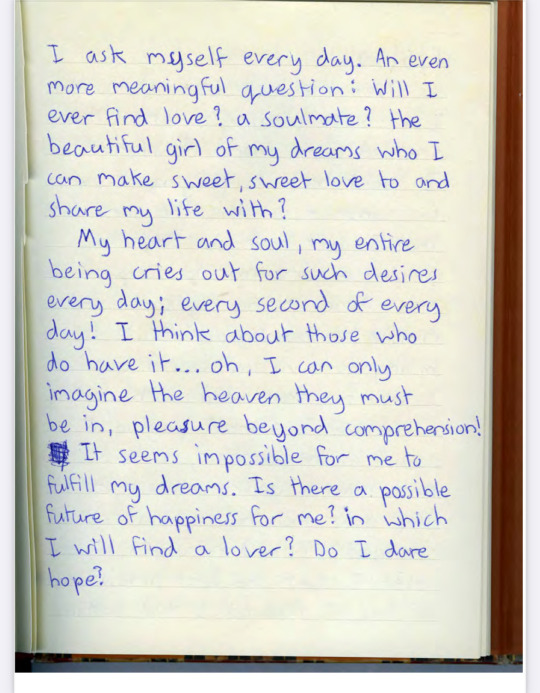 I ask myself every day. An even
more meaningful question: Will I
ever find love? a soulmate? the
beautiful girl of my dreams who I
can make sweet, sweet love to and
share my life with?
My heart and soul, my entire
being cries out for such desires
every day; every second of every
day! I think about those who
do have it... oh, I can only
imagine the heaven they must
be in, pleasure beyond comprehension!
It seems impossible for me to
fulfill my dreams. Is there a possible
future of happiness for me? in which
I will find a lover? Do I dare
hope?